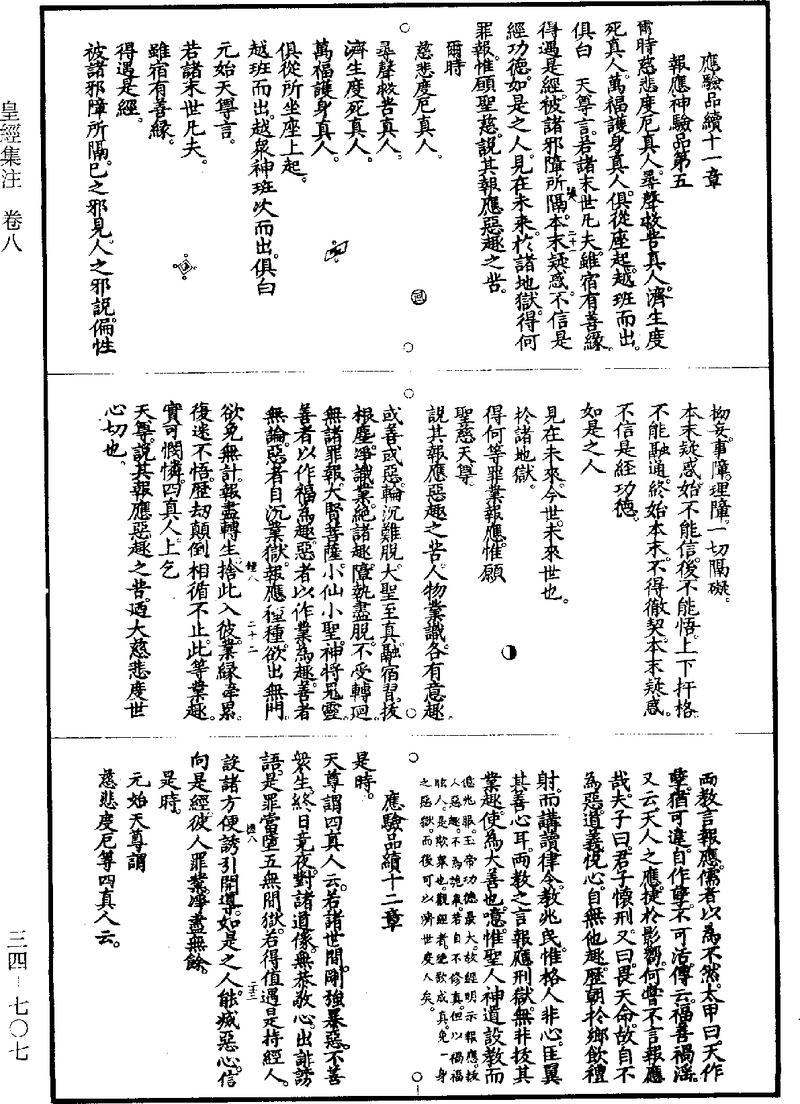 皇經集注　卷八
三四－七〇七
應驗品續十一章
報應神驗品第五
爾時慈悲度厄真人尋聲救苦真人濟生度
死真人萬福護身真人俱從座起越班而出
俱白　天尊言若諸末世凡夫雖宿有善緣
得遇是經被諸邪障所隔本末疑惑不信是
經功德如是之人見在未來於諸地獄得何
罪報惟願聖慈說其報應惡趣之苦
爾時
慈悲度厄真人
尋聲救苦真人
濟生度死真人
萬福護身真人
俱從所坐座上起
越班而出越眾神班次而出俱白
元始天尊言
若諸末世凡夫
雖宿有善緣
得遇是經
被諸邪障所隔已之邪見人之邪說偏性
拗妄事障理障一切隔礙
本末疑惑始不能信後不能悟上下扞格
不能融通終始本末不得徹契本末疑惑
不信是經功德
如是之人
見在未來今世未來世也
於諸地獄
得何等罪業報應惟願
聖慈天尊
說其報應惡趣之苦人物業識各有意趣
或善或惡輪沉難脫大聖至真融宿習拔
根塵淨識業絕諸趣障執盡脫不受轉迴
無諸罪報大賢菩薩小仙小聖神將鬼靈
善者以作福為趣惡者以作業為趣善者
無論惡者自沉業獄報應種種欲出無門
欲免無計報盡轉生捨此入彼業緣牽累
復迷不悟歷劫顛倒相循不止此等業趣
實可憫憐四真人上乞
天尊說其報應惡趣之苦迺大慈悲度世
心切也
兩教言報應儒者以為不然太甲曰天作
孽猶可違自作孽不可活傳云福善禍淫
又云天人之應捷於影響何嘗不言報應
哉夫子曰君子懷刑又曰畏天命故自不
為惡道義悅心自無他趣歷朝於鄉飲禮
射而講讀律令教兆民惟格人非心匡翼
其善心耳兩教之言報應刑獄無非拔其
業趣使為大善也噫惟聖人神道設教而
應驗品續十二章
是時
天尊謂四真人云若諸世間剛強暴惡不善
眾生終日竟夜對諸道像無恭敬心出誹謗
語是罪當墮五無間獄若得值遇是持經人
設諸方便誘引開導如是之人能滅惡心信
向是經彼人罪業淨盡無餘
是時
元始天尊謂
慈悲度厄等四真人云